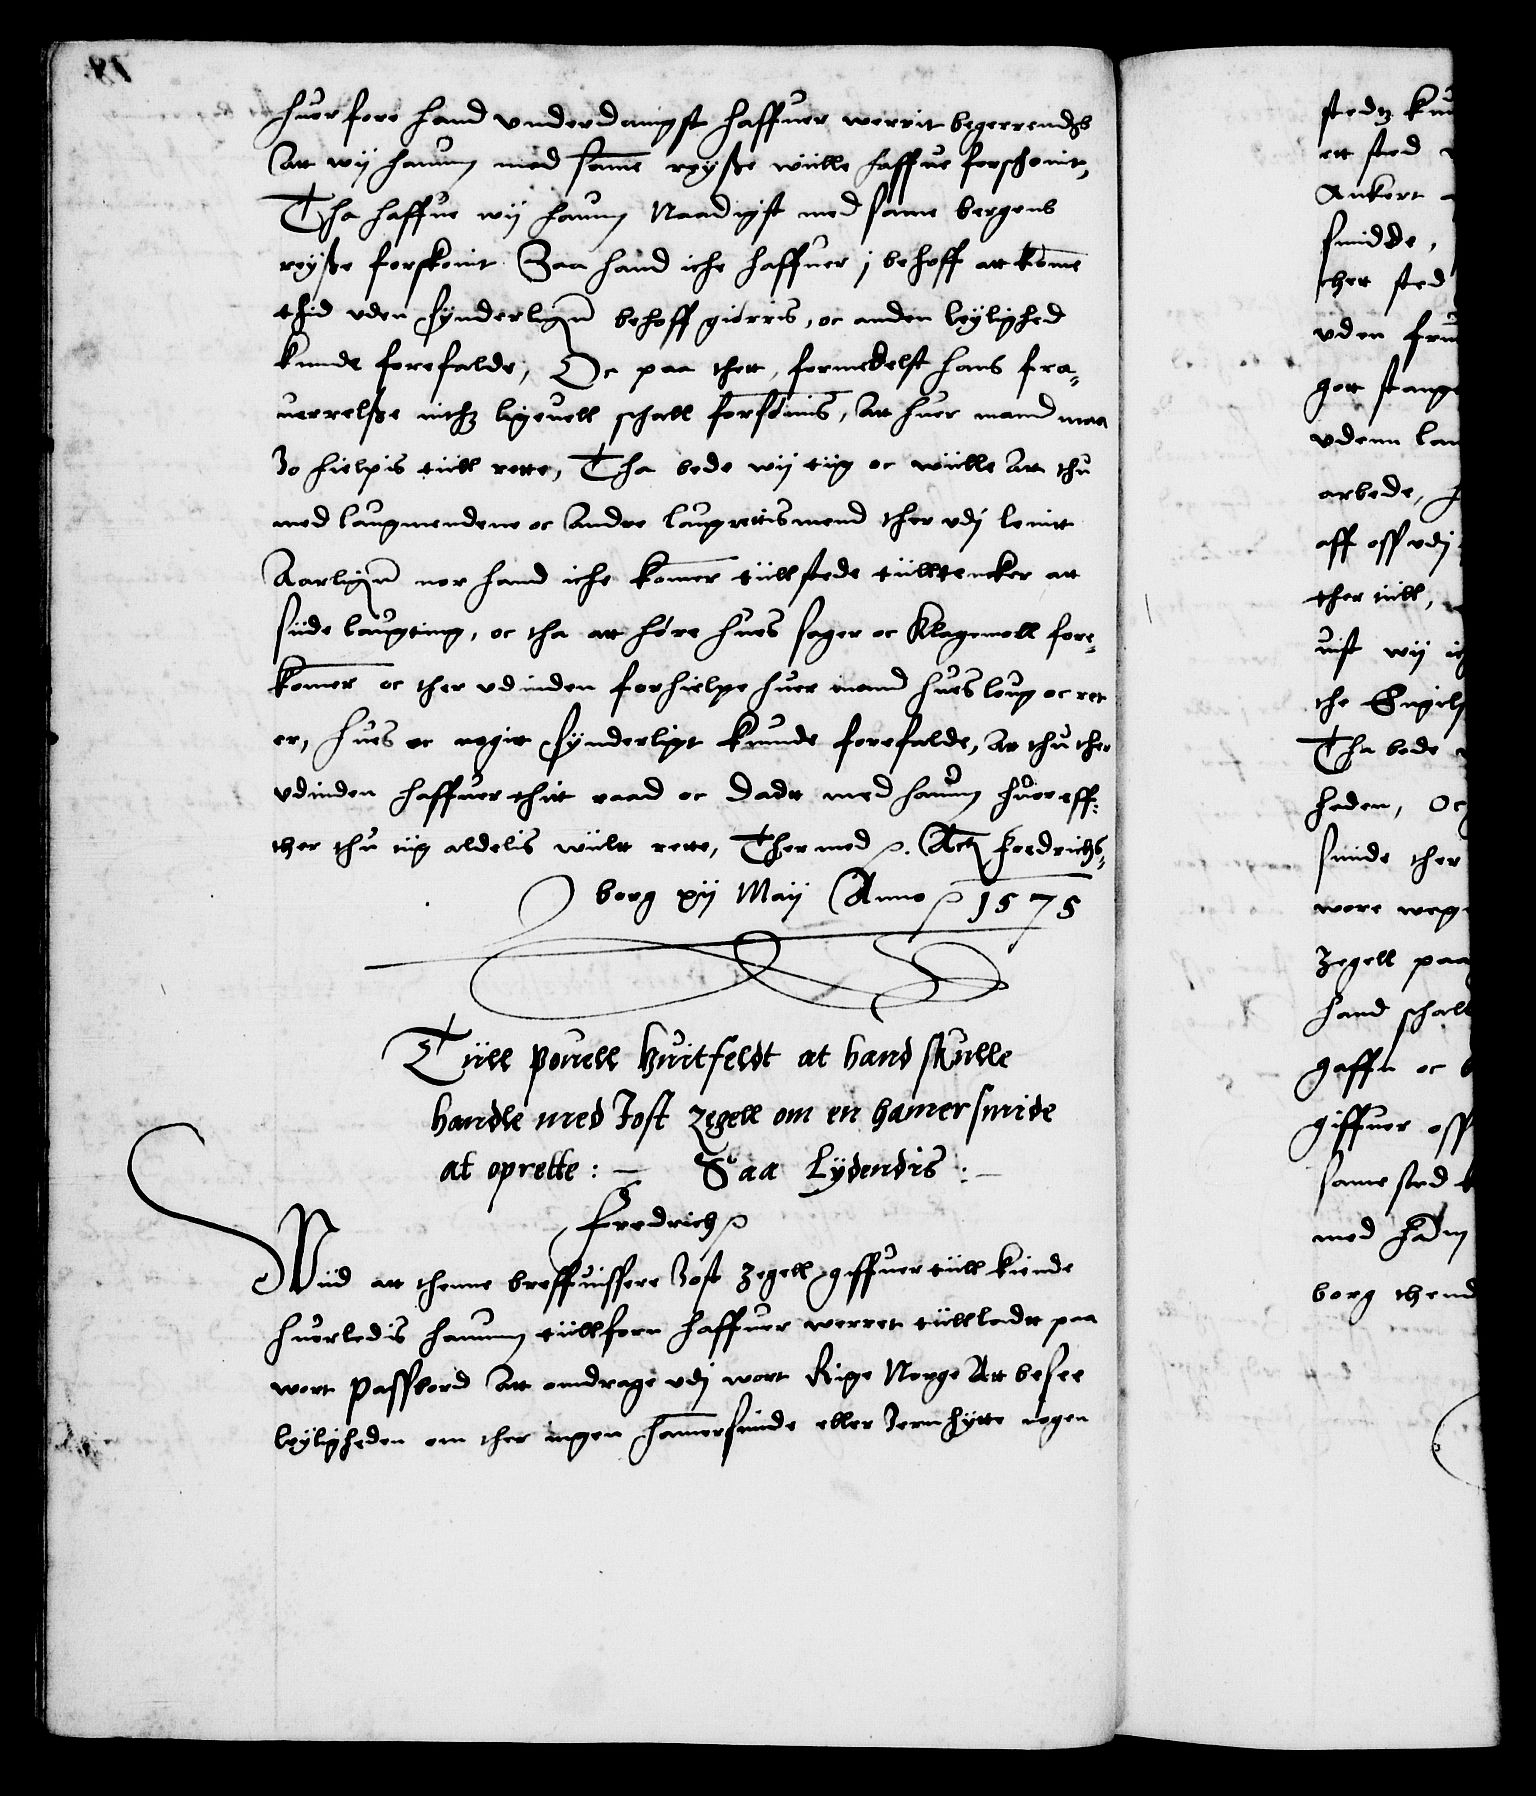 huer fore hand vnderdanigst haffuer werrit begerrendis
Att wij hanum med same reyße wiille haffue forschonit,
Tha haffue wij hanum Naadigst med same bergens
reyße forskonit Saa hand iche haffuer j behoff att kome
thid vden synderligen behoff giörris, oc anden leylighed
kunde forefalde, Oc paa thett, formedelst hans fra¬
uerrelße icthz ligeuell schall forsømis, Att huer mand maa
Jo hielpis tiill rette, Tha bede wij tiig oc wiille Att thu
med laugmendene oc Andre laugrettismend ther vdj lenitt
Aarligen nor hand iche komer tiillstede tiilltencker att
siide laugting, oc tha att høre hues sager oc Klagemoll fore¬
komer oc ther vdinden forhielpe huer mand hues loug oc ret
er, hues oc nogit synderligt kunde forefalde, At thu ther
vdinden haffuer thit raad oc dadtt med hanum huor eff¬
ther thu tiig aldelis wiilt rette, Ther med p. Actz Fredrichs¬
borg xij Maij Anno p 1575
Tiill Pouell Huitfeldt at hand skulle
handle med Jost Zegell om en hamersmide
at oprette : — Saa Lydendis : —
Fredrich p
Wiid att thenne breffuissere Jost Zegell giffuer tiill kiende
huorledis hanum tiillforn haffuer werret tiilladtt paa
wort Passbord Att omdrage vdj wort Rige Norge Att besee
leyligheden om ther ingen hamersmide eller Jernhytte nogen
stedtz
ett sted
Ankert
smidde,
ther sted
vden
gott
vdenn
arbede,
aff oss vdj
ther tiill,
uist wij
the
Tha bede
heden, Oc
smide ther
wore
Zegell paa
hand schall
gaffn oc
giffuer oss
same sted
med
borg thend